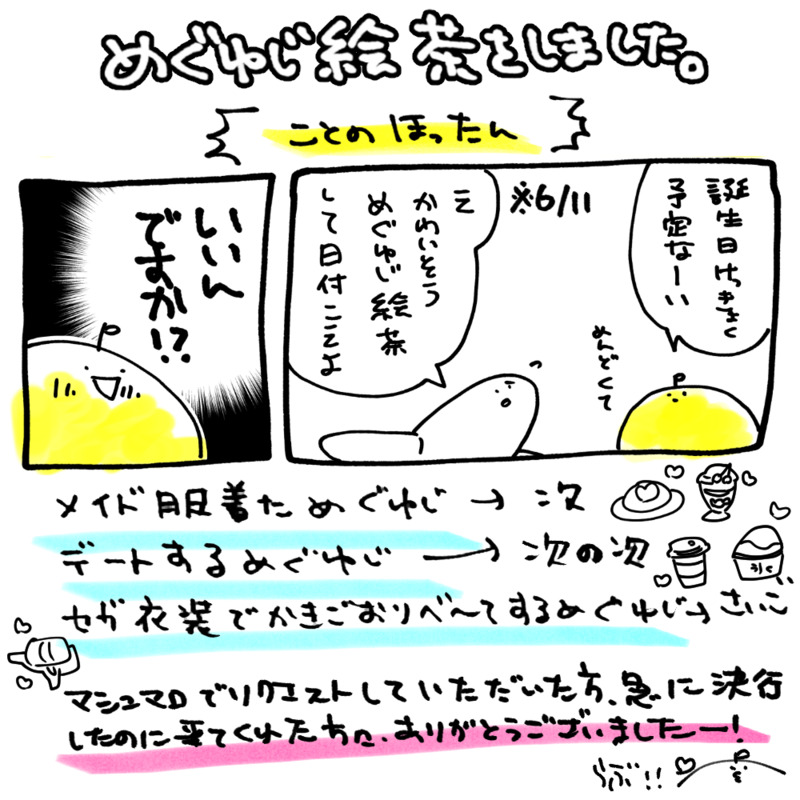 めぐゆじ絵茶をしました。
ことのほったん
誕生日けっきょく
予定なーい
めんどくて
※6/11
え
かわいそう
めぐゆじ絵茶
して日付こえよ
いいん
ですか!?
メイド服着ためぐゆじ→次
デートするめぐゆじ→次の次
セガ衣装でかきごおりべ〜てするめぐゆじ→さいご
マシュマロでリクエストしていただいた方、急に決行
したのに来てくれた方々、ありがとうございましたー!
らぶ!!